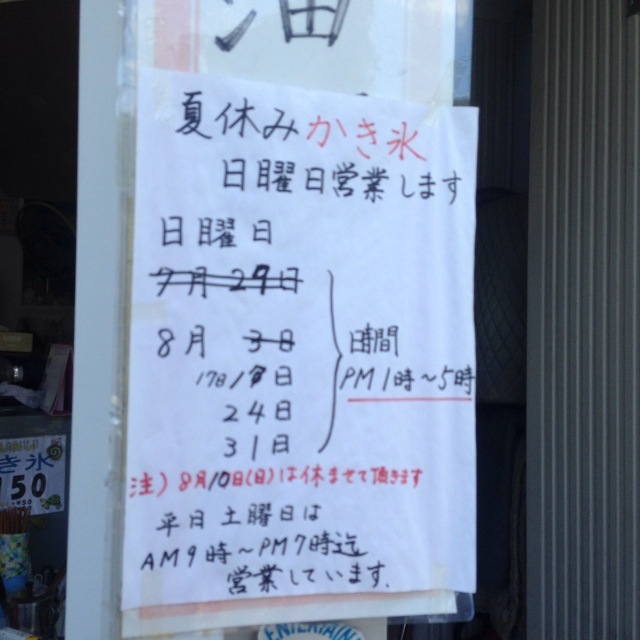 夏休みかき氷
日曜日営業します
日曜日
7月27日
8月 3日
17日/17日
24日
31日
時間
PM1時~5時
注)8月10日(日)は休ませて頂きます
平日土曜日は
AM9時~PM7時迄
営業しています.
き氷
150